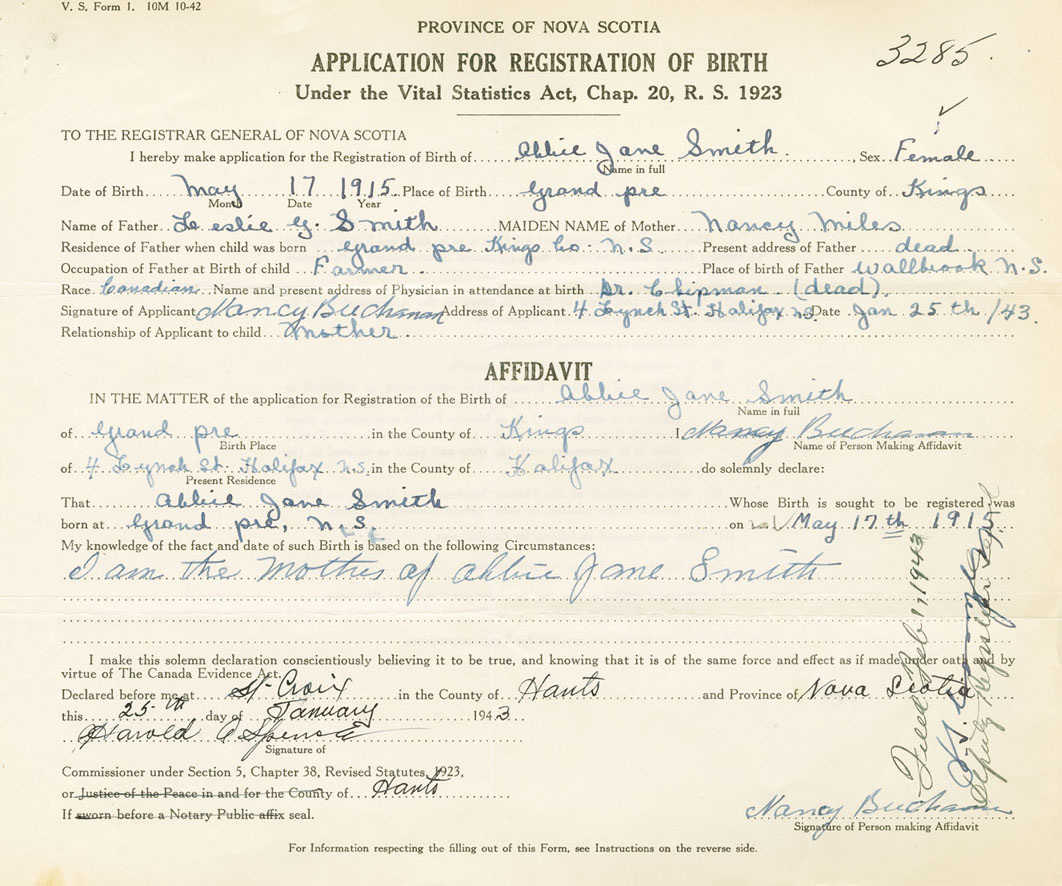 V. S. Form 1. 10M 10-42
PROVINCE OF NOVA SCOTIA
3285.
APPLICATION FOR REGISTRATION OF BIRTH
Under the Vital Statistics Act, Chap. 20, R. S. 1923
TO THE REGISTRAR GENERAL OF NOVA SCOTIA
I hereby make application for the Registration of Birth of Abbie Jane Smith, Sex Female
Name in full
Date of Birth May 17 1915 Place of Birth Grand pre County of Kings
Month Date Year
Name of Father Leslie G. Smith MAIDEN NAME of Mother Nancy Miles
Residence of Father when child was born Grand pre Kings Co. N.S. Present address of Father dead
Occupation of Father at Birth of child Farmer Place of birth of Father Wallbrook N.S.
Race Canadian Name and present address of Physician in attendance at birth Dr. Chipman (dead)
Signature of Applicant Nancy Buchanan Address of Applicant 4 Lynch St. Halifax N.S. Date Jan 25th/43.
Relationship of Applicant to child Mother
AFFIDAVIT
IN THE MATTER of the application for Registration of the Birth of Abbie Jane Smith
Name in full
of Grand pre in the County of Kings I Nancy Buchanan
Birth Place Name of Person Making Affidavit
of 4 Lynch St. Halifax N.S. in the County of Halifax do solemnly declare:
Present Residence
That Abbie Jane Smith Whose Birth is sought to be registered was
born at Grand pre, N.S. on May 17th 1915
My knowledge of the fact and date of such Birth is based on the following Circumstances:
I am the Mother of Abbie Jane Smith
I make this solemn declaration conscientiously believing it to be true, and knowing that it is of the same force and effect as if made under oath and by
virtue of The Canada Evidence Act.
Declared before me at St. Croix in the County of Hants and Province of Nova Scotia
this 25th day of January 1943
Harold
Signature of
Commissioner under Section 5, Chapter 38, Revised Statutes, 1923,
or Justice of the Peace in and for the County of Hants
If sworn before a Notary Public affix seal.
Nancy Buchanan
Signature of Person making Affidavit
Filed Feb 1, 1943
Deputy Registrar
For Information respecting the filling out of this Form, see Instructions on the reverse side.